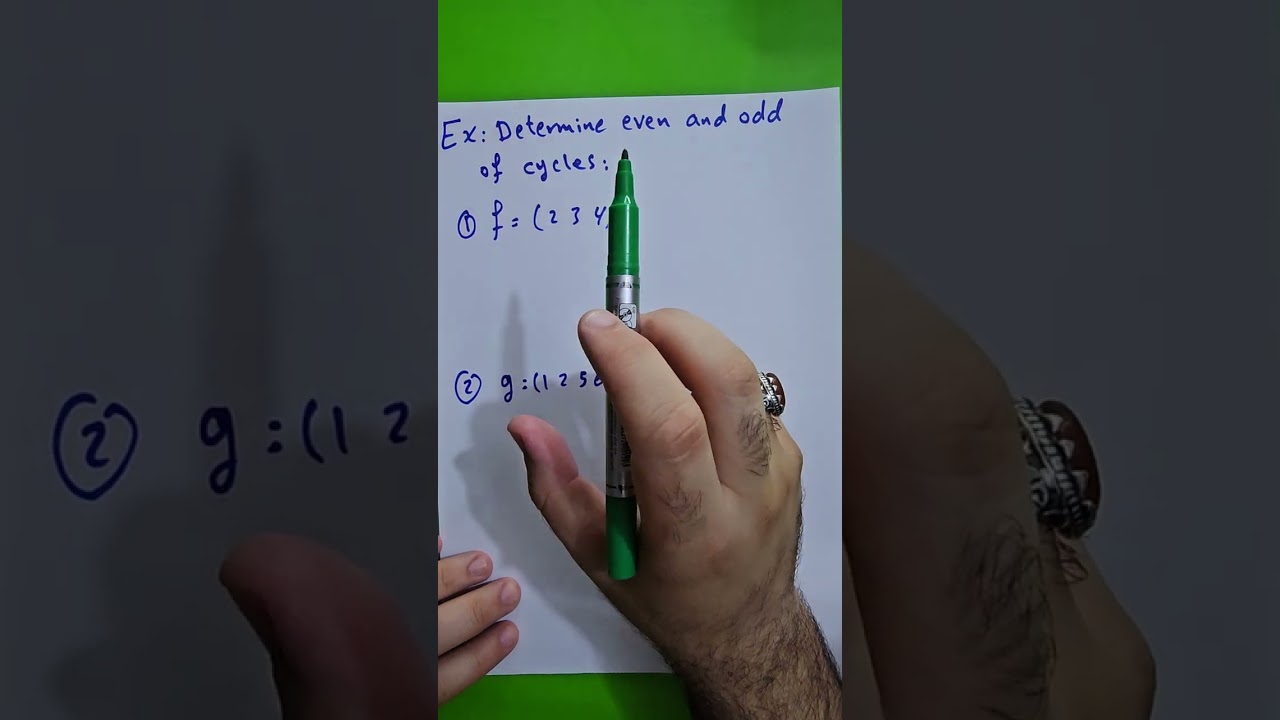 Ex: Determine even and odd
of cycles:
① f = (2 3 4)
② g : (1 2 5
② g : (1 2